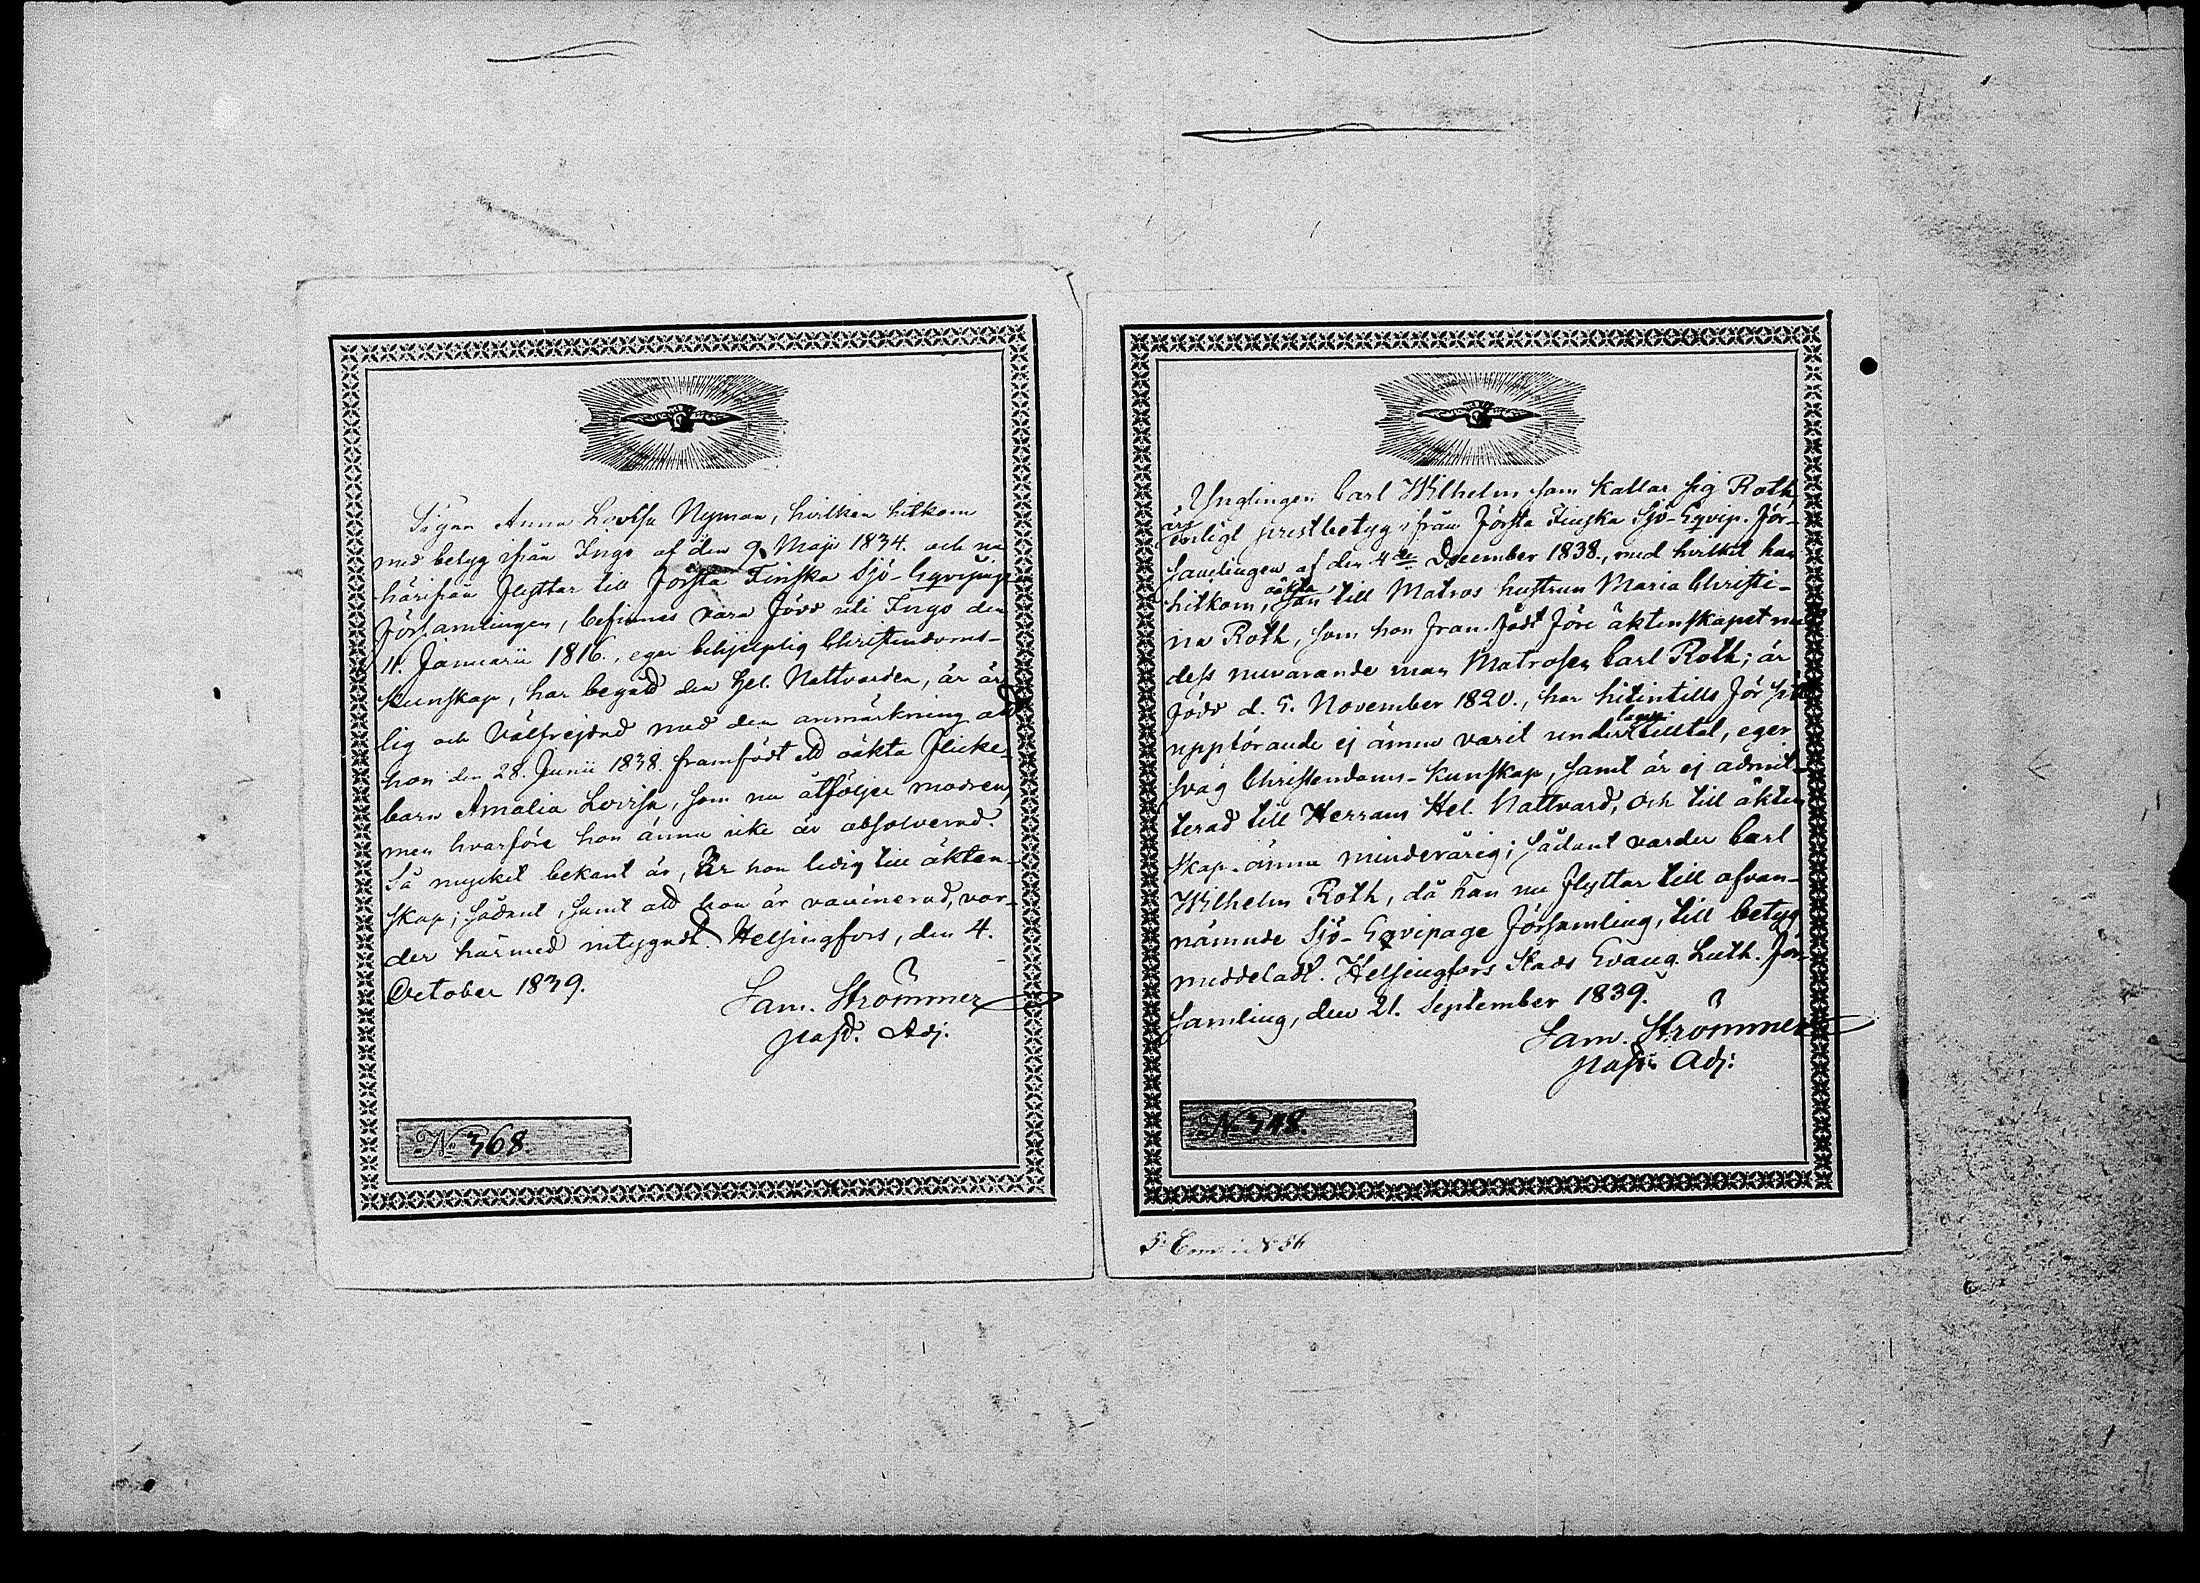 Pigan Anna Lovisa Nyman, hvilken hitkom
med betyg ifrån Ingo af den 9. Maji 1834. och nu
härifrån flyttar till Första Finska Sjö-Eqvipage
Församlingen, befinnes vara född uti Ingo den
11. Januarii 1816., eger behjelplig Christendoms-
kunskap, har begådt den Hel. Nattvarden, är är-
lig och välfrejdad med den anmärkning att
hon den 28. Junii 1838. framfödt ett oäkta flicke-
barn Amalia Lovisa, som nu åtföljer modren,
men hvarföre hon ännu icke är absolverad.
Så mycket bekant är, är hon ledig till äkten-
skap; sådant, samt att hon är vaccinerad, var-
der härmed intygadt. Helsingfors, den 4.
October 1839.
Sam. Strömmer
Past. Adj.
No 368.
Ynglingen Carl Wilhelm som kallar sig Roth,
är
enligt prestbetyg ifrån Första Finska Sjö-Eqvip. För-
samlingen af den 4de December 1838., med hvilket han
hitkom, oäkta Son till Matros hustrun Maria Christi-
na Roth, som hon fram födt före äktenskapet med
dess nuvarande man Matrosen Carl Roth; är
född d. 5. November 1820., har hitintills för sitt
uppförande ej ännu varit under laga tilltal, eger
svag Christendoms-kunskap, samt är ej admit-
terad till Herrans Hel. Nattvard, och till äkten
skap ännu minderårig; sådant varder Carl
Wilhelm Roth, då han nu flyttar till ofvan-
nämnde Sjö-Eqvipage församling, till betyg
meddeladt. Helsingfors Stads Evang. Luth. För-
samling, den 21. September 1839.
Sam. Strömmer
Past. Adj:
No 348.
5